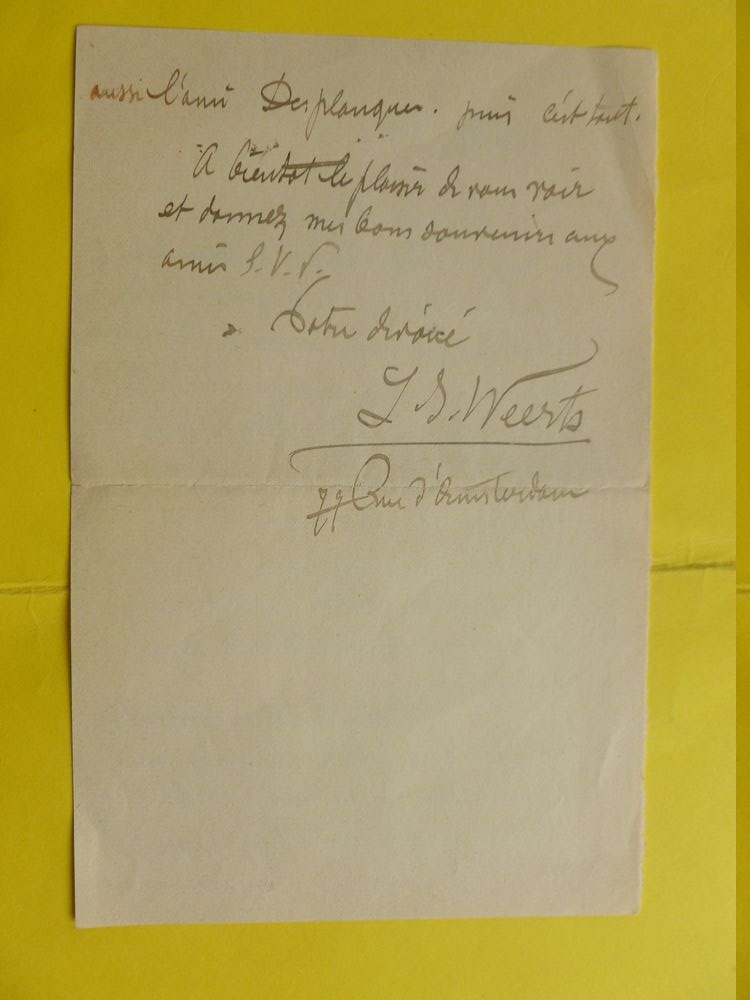 aussi l'ami Desplanques. puis c'est tout.
A bientot le plaisir de vous voir
et donnez mes bons souvenirs aux
amis S.V.P.
Votre dévoué
J. J. Weerts
77 Rue d'Amsterdam